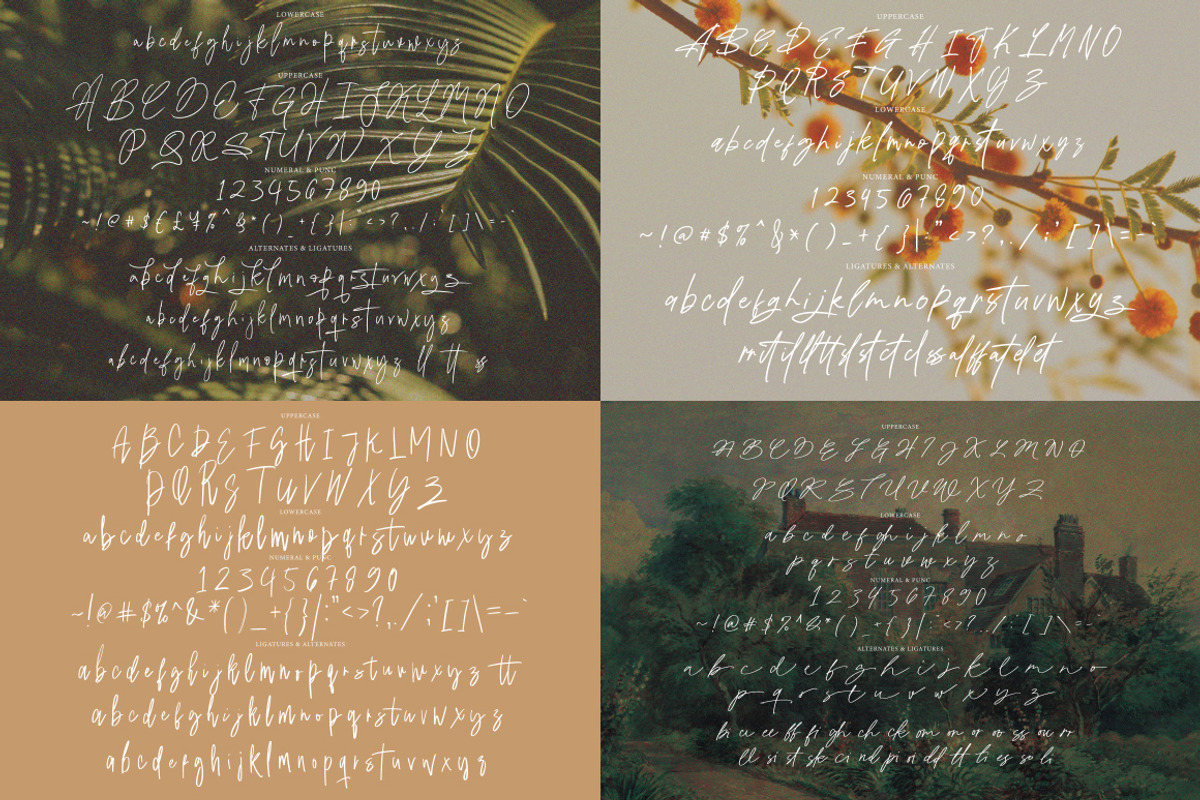 LOWERCASE
abcdefghijklmnopqrstuvwxyz
UPPERCASE
ABCDEFGHIJKLMNO
PQRSTUVWXYZ
NUMERAL & PUNC
1234567890
~!@#$€£¥%^&*()_+{}|:"<>?,./;'[]\=-`
ALTERNATES & LIGATURES
abcdefghijklmnopqrstuvwxyz
abcdefghijklmnopqrstuvwxyz
abcdefghijklmnopqrstuvwxyz ll tt ss
UPPERCASE
ABCDEFGHIJKLMNO
PQRSTUVWXYZ
LOWERCASE
abcdefghijklmnopqrstuvwxyz
NUMERAL & PUNC
1234567890
~!@#$%^&*()_+{}|:"<>?,./;'[]\=-
LIGATURES & ALTERNATES
abcdefghijklmnopqrstuvwxyz
UPPERCASE
ABCDEFGHIJKLMNO
PQRSTUVWXYZ
LOWERCASE
abcdefghijklmnopqrstuvwxyz
NUMERAL & PUNC
1234567890
~!@#$%^&*()_+{}|:"<>?,./;'[]\=-`
LIGATURES & ALTERNATES
abcdefghijklmnopqrstuvwxyz tt
abcdefghijklmnopqrstuvwxyz
abcdefghijklmnopqrstuvwxyz
UPPERCASE
ABCDEFGHIJKLMNO
PQRSTUVWXYZ
LOWERCASE
abcdefghijklmno
pqrstuvwxyz
NUMERAL & PUNC
1234567890
~!@#$%^&*()_+{}|:"<>?,./;'[]\=-`
ALTERNATES & LIGATURES
abcdefghijklmno
pqrstuvwxyz
ee ff fi gh ch ck om on or oo ss ou rr
ll si st sk ci nd pi ri dd tt ti es so li